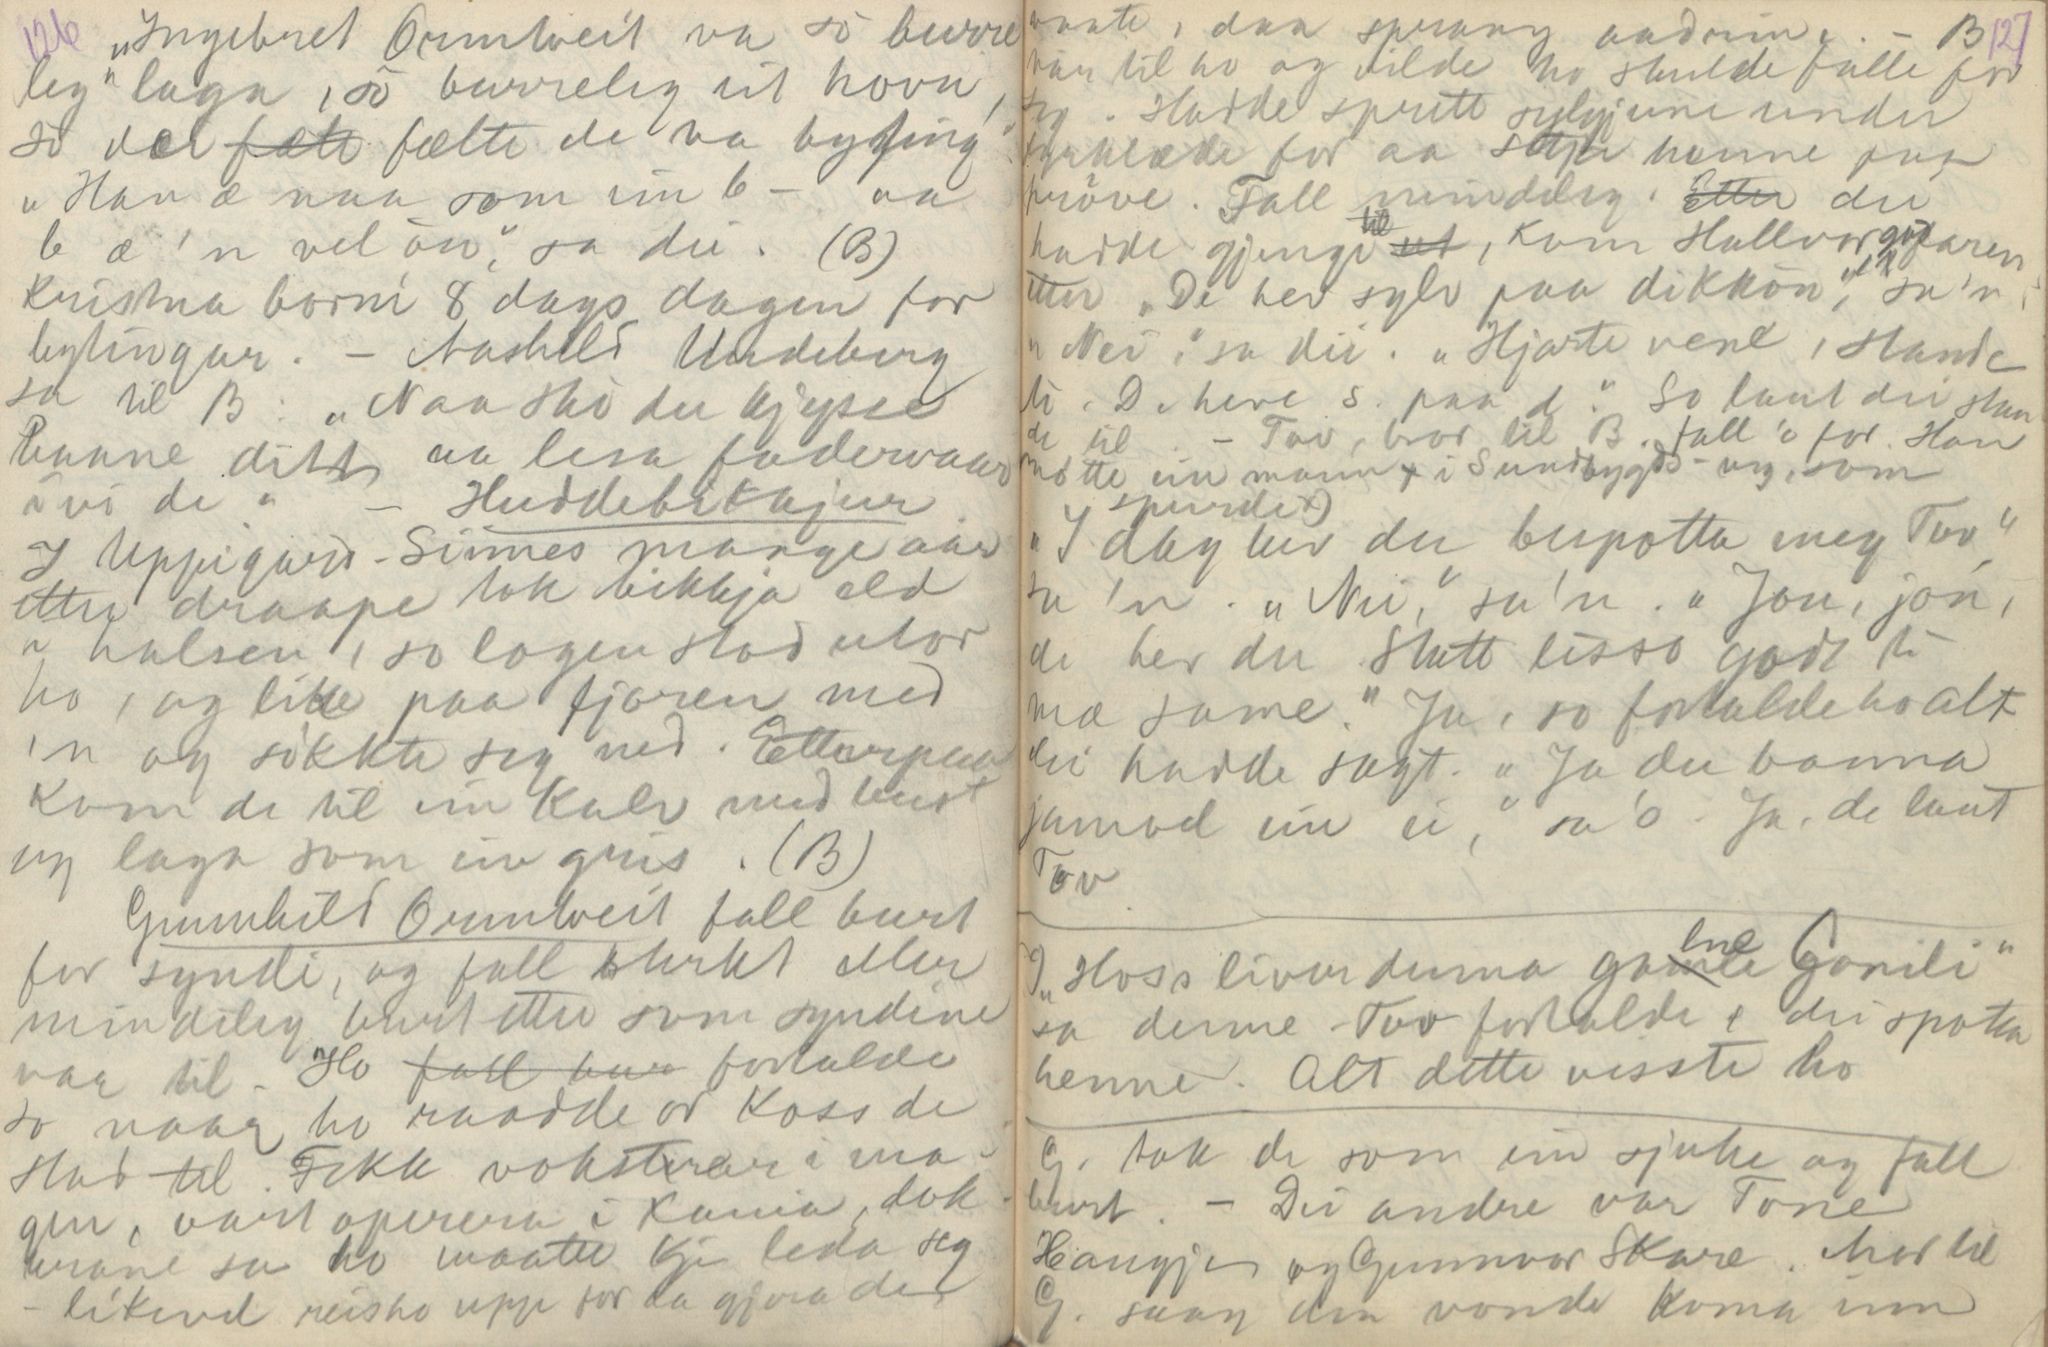 126
"Ingebret Ormtveit va sò burre
leg" laga, sò burreleg it hovu,
sò dei fælte de va byting"
"Han æ naa som ein b – aa
b æ 'n vel òu," sa dei. (B)
Kristna borni 8 dags dagen for
bytingar. – Aashild Urdeberg
sa til B: "Naa ska du kjysse
baane ditt aa lesa fadervaar
ivi de" – Huddebikkjur
I Uppigard-Sinnes mange aar
etter draape tok bikkja eld
i halsen, so logen stod utor
ho, og like paa fjoren med
'n og sòkkte seg ned. Etterpaa
kom de til ein kalv med bust
og laga som ein gris. (B)
Gunnhild Ormtveit fall burt
for syndi, og fall sterkt eller
mindeleg burt etter som syndine
var til. Ho fall bur fortalde
so naar ho raadde or koss de
stod til. Fekk vokster i ma-
gen, vart operera i Kania, dok-
terane sa ho maatte kje leda seg
– likevel reis ho upp for aa gjera de
127
vaate, daa sprang aadrine. – B
var til ho og vilde ho skulde falle for
seg. Hadde sprett sylgjune under
fyrklæde for aa setja henne paa
pròve. Fall mindeleg. Etter dei
hadde gjenge til ut, kom Hallvor gofaren
etter "De her sylv paa dikkòn," sa'n.
"Nei," sa dei. "Hjarte vene, stande
ti. De heve s. paa d." So laut dei stan
de til. – Tov, bror til B. fall 'o for. Han
mòtte ein mann x i Sundbygds-veg, som
spurde x)
"I dag her du bespotta meg Tov"
sa 'n. "Nei," sa'n. "Jou, jou,
de her du. Statt lisso godt ti
mæ same." Ja, so fortalde ho alt
dei hadde sagt. "Ja du banna
jamvel ein ei," sa 'o. Ja, de laut
Tov
"Hoss liver denna gamle lne Gonili"
sa denne Tov fortalde, dei spotta
henne. Alt dette visste ho
G. tok de som ein sjuke og fall
burt. – Dei andre var Tone
Haugjen og Gunnvor Skare. Mor til
G. saag den vonde koma inn